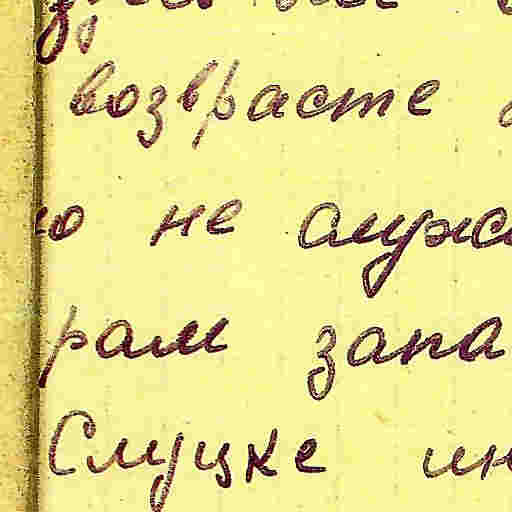 возврасте
ю не служ
рам запа
Слуцке ин